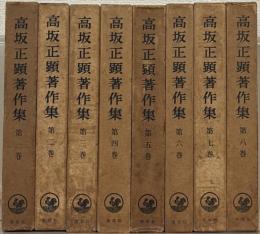 高坂正顕著作集 第一巻
高坂正顕著作集 第二巻
高坂正顕著作集 第三巻
高坂正顕著作集 第四巻
高坂正顕著作集 第五巻
高坂正顕著作集 第六巻
高坂正顕著作集 第七巻
高坂正顕著作集 第八巻